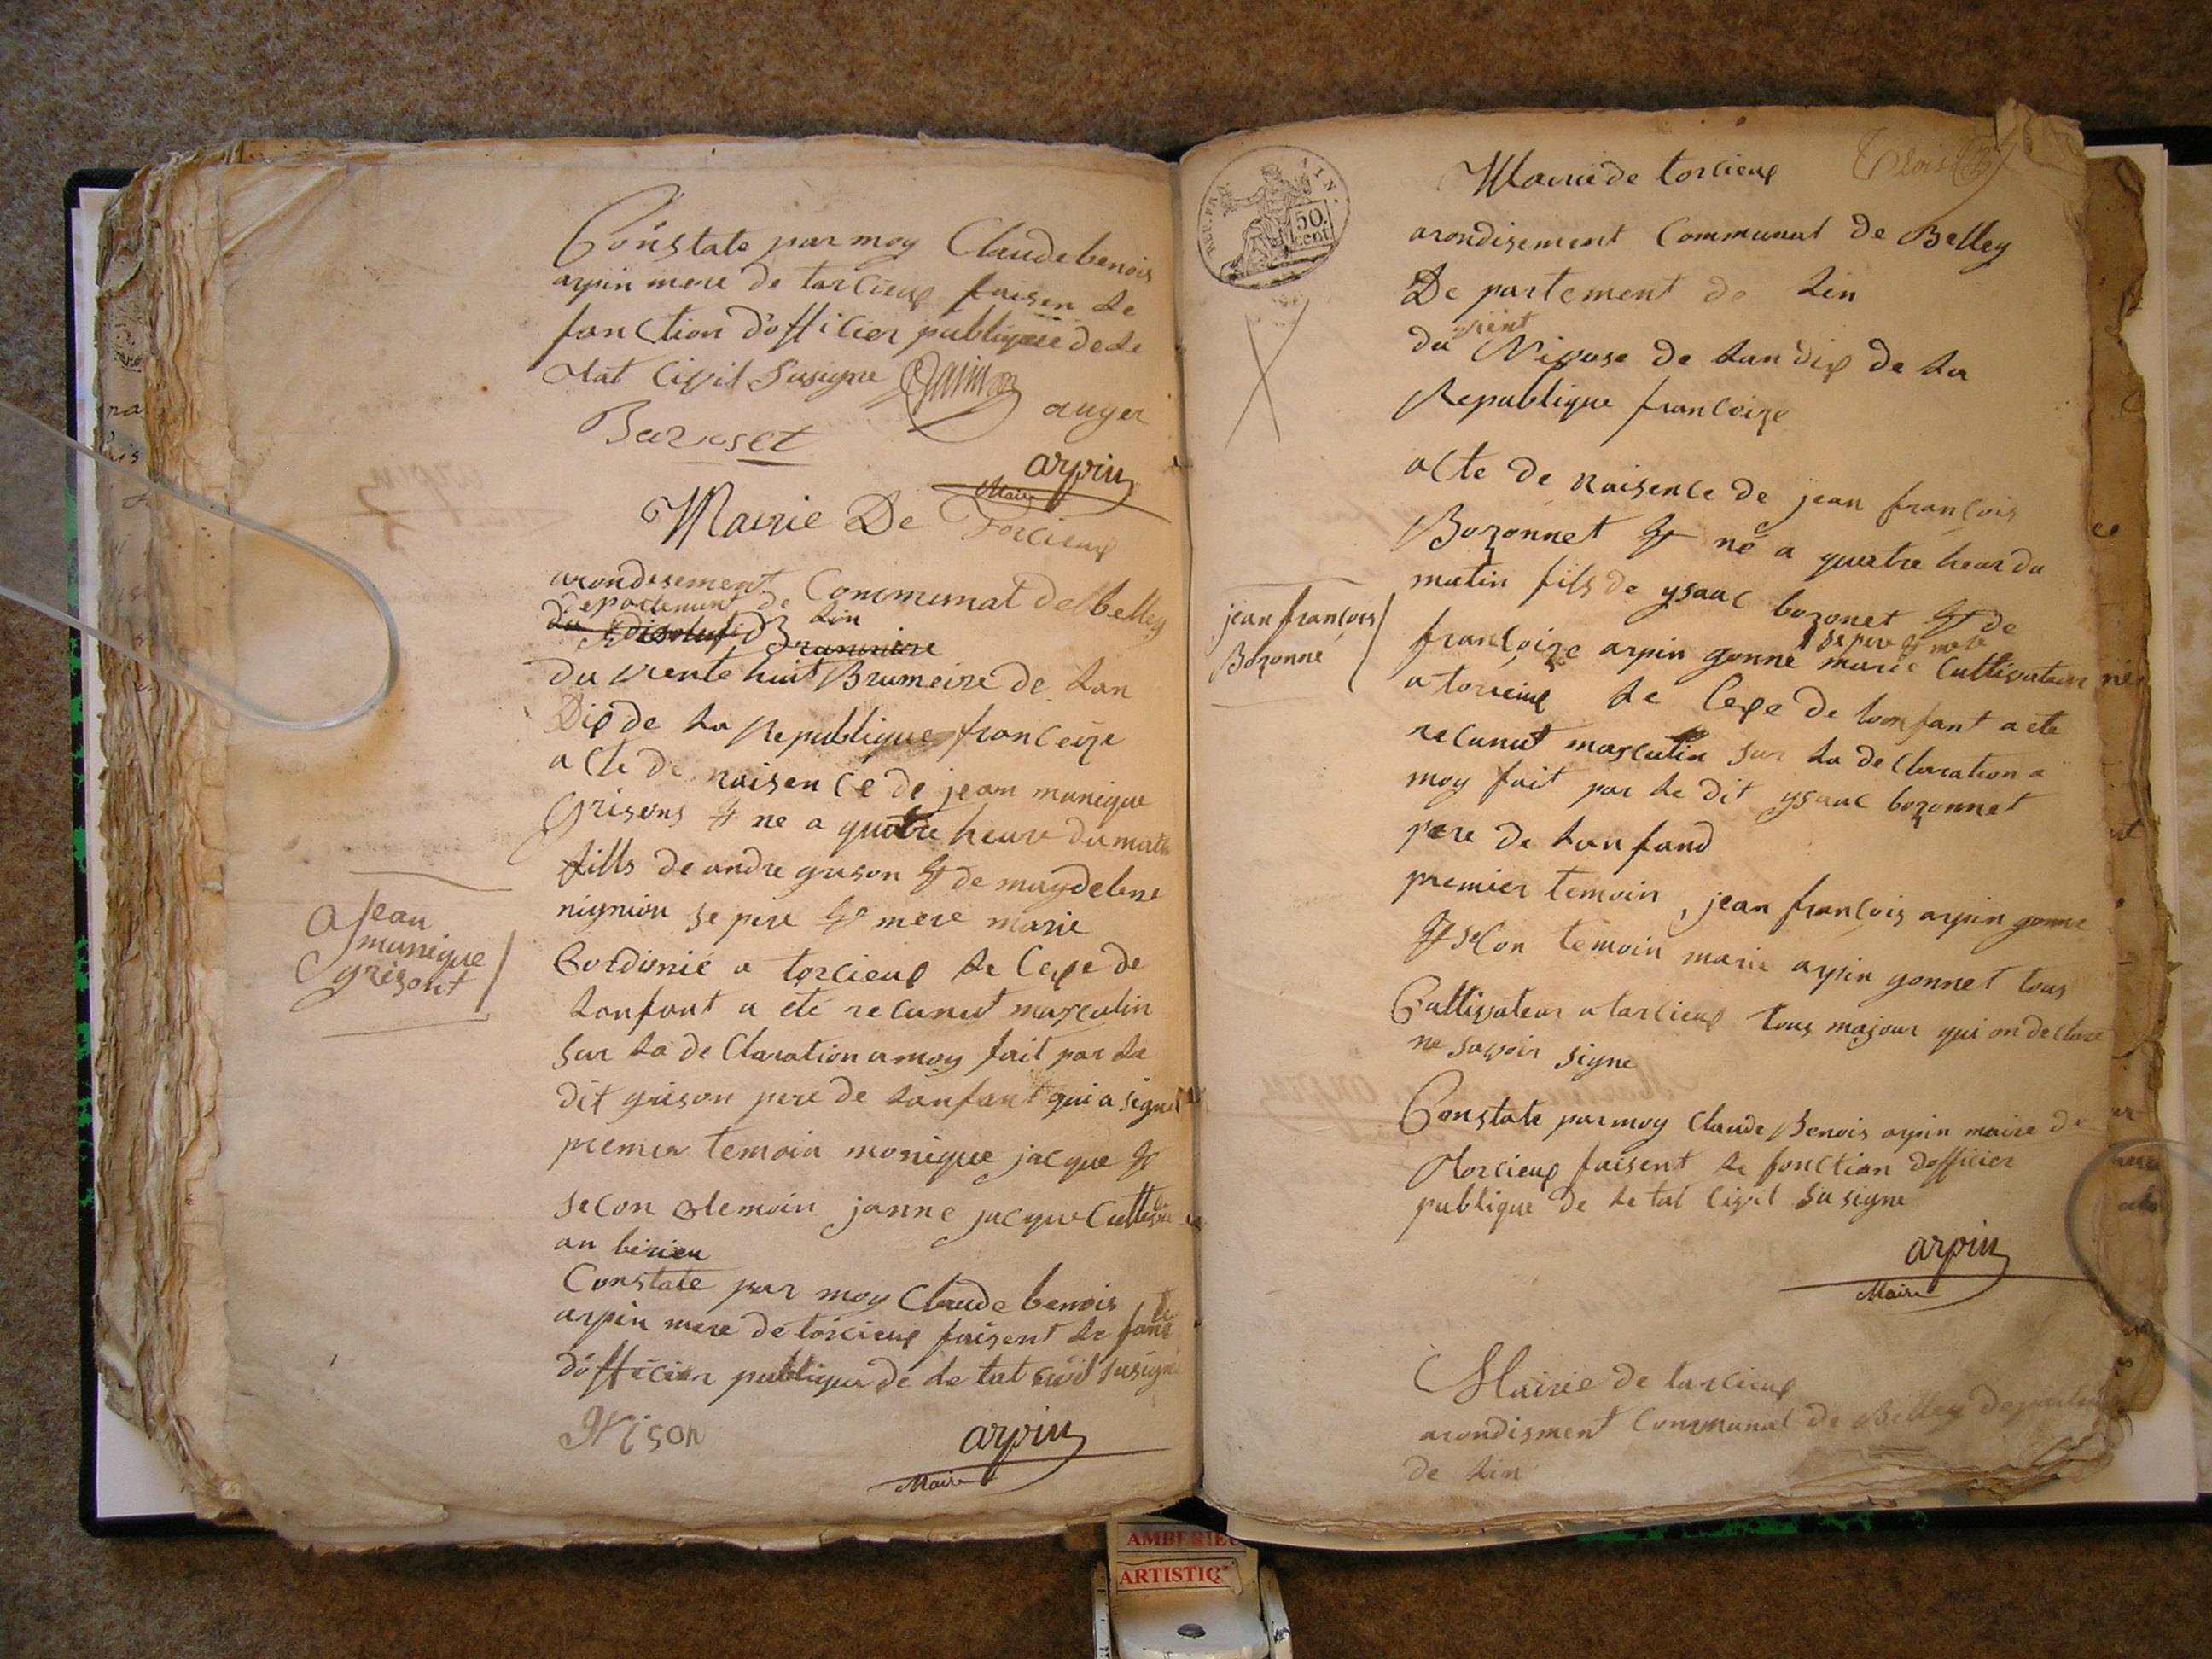 Constate par moy Claude benois
arpin mere de torcieux faisen le
fonction dofficier publique de le
tat Civil Susigne
auger
arpin
Maire
Mairie De Torcieux
arondisement Communal de Belley
departement de Lin
du vente huit Brumeire de Lan
Dix de La Republique franceize
acte de naisence de jean munique
Grisons & ne a quatre heure du matin
fills de andre grison & de maydelene
nignion se pere & mere marie
Cordonié a torcieux Le Cexe de
Lonfant a eté recunut masculin
Sur La de Claration a moy fait par Le
dit grison pere de Lanfant qui a signé
premier temoin monique jacque &
Secon temoin janne jacque
an
Constate par moy Claude benois
arpin mere de torcieux faisent Le fonc
dofficier publique de Le tat civil susigné
Grison
arpin
Maire
Jean
munique
grisont
REP. FRA.
50
cent
Mairie de torcieux
arondisement Communal de Belley
De partement de Lin
du Nivose de Lan dix de La
Republique francoize
acte de naisence de jean françois
Bozonnet & né a quatre hear du
matin fils de ysaac bozonet & de
se pere & mere
francoize arpin gonne marie Cultivateur
a torcieux Le Cexe de Lonfant a ete
recunut masculin Sur La de Claration a
moy fait par Le dit ysaac bozonnet
pere de Lanfand
premier temoin, jean françois arpin gonne
& seCon temoin marie arpin gonnet tous
Cultivateur a torcieux tous majour qui on declare
ne savoir signe
Constate par moy Claude Benois arpin maire de
Torcieux faisent Le fonction dofficier
publique de Le tat Civil Susigne
arpin
Maire
jean françois
Bozonne
Mairie de torcieux
arondisment Communal de Belley
de Lin
AMBERIEU
ARTISTIQ